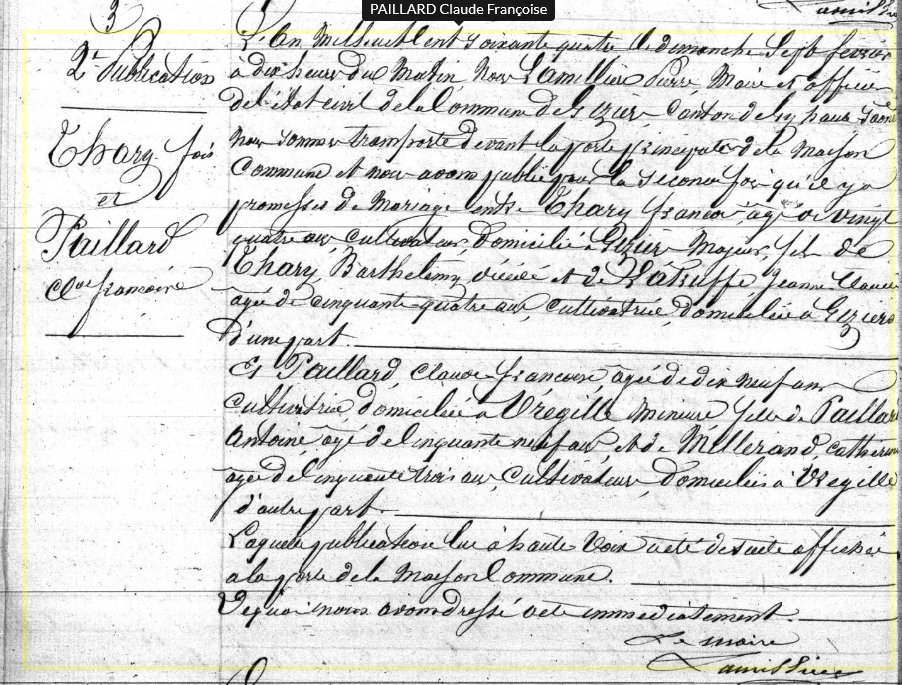 PAILLARD Claude Françoise
3
2e Publication
Thary fois
et
Paillard
Cde francoise
L'An mil huit cent soixante quatre le dimanche Sept fevrier
à dix heures du Matin Nous Lamillier Pierre, Maire et officier
de l'état civil de la Commune de Gézier, Canton de Gy haute Saone
nous sommes transporté devant la porte principale de la Maison
Commune et nous avons publié pour la seconde fois qu'il y a
promesses de Mariage entre Thary francois agé de vingt
quatre ans, Cultivateur, Domicilié à Gézier Majeur, fils de
Thary Barthelemy décédé et de Jeanne Claude
agée de cinquante-quatre ans, Cultivatrice, Domiciliée à Geziers
d'une part.
Et Paillard, Claude-francoise, agée de dix neuf ans
Cultivatrice, Domiciliée à Vregille Mineure, fille de Paillard
Antoine agé de Cinquante neuf ans, et de Millerand, Catherine
agée de Cinquante trois ans, Cultivateurs, Domiciliés à Vregille
d'autre part.
Laquelle publication lue à haute Voix a été de suite affichée
a la porte de la Maison Commune.
De quoi nous avons dressé acte immediatement.
Le maire
Lamillier